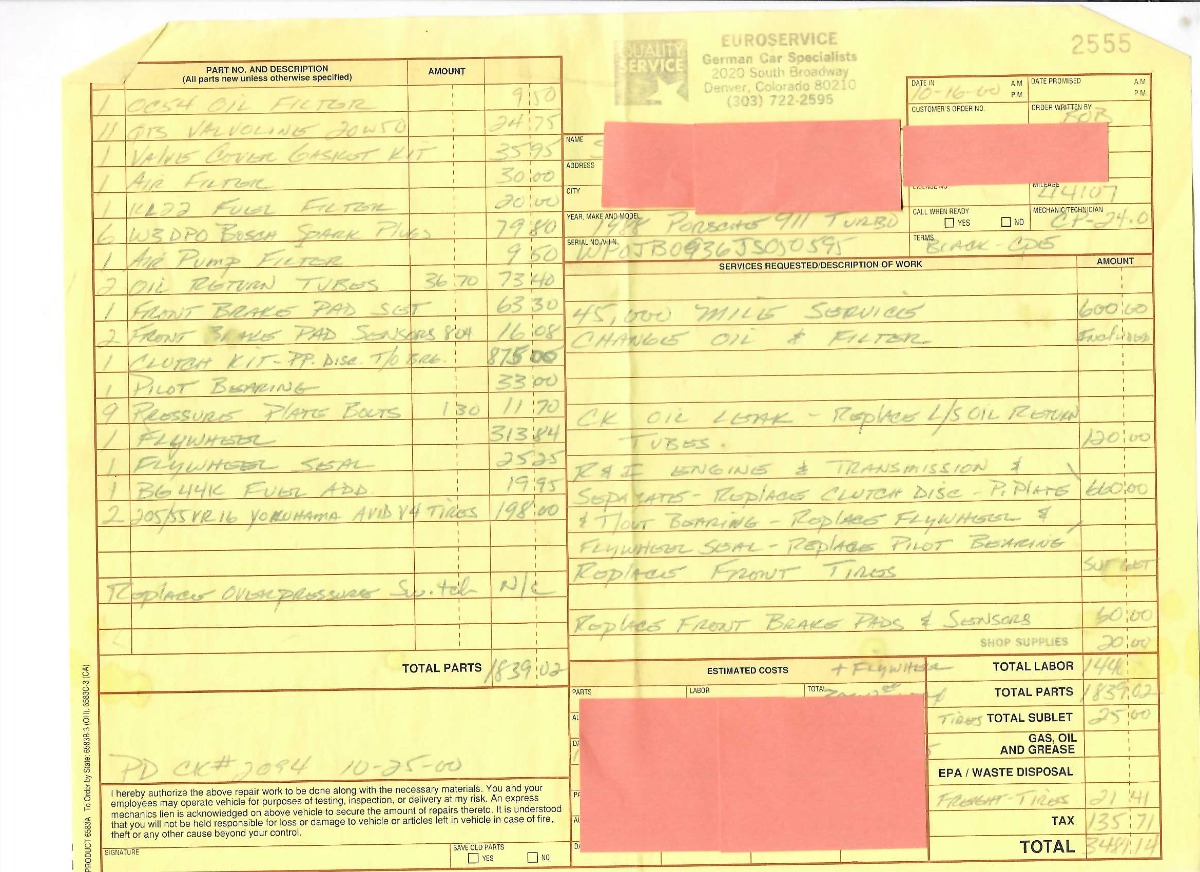 QUALITY SERVICE
EUROSERVICE
German Car Specialists
2020 South Broadway
Denver, Colorado 80210
(303) 722-2595
2555
PART NO. AND DESCRIPTION
(All parts new unless otherwise specified)
AMOUNT
1 OC54 OIL FILTER 9 50
11 QTS VALVOLINE 20W50 24 75
1 VALVE COVER GASKET KIT 35 95
1 AIR FILTER 30 00
1 KL22 FUEL FILTER 20 00
6 W3DPO BOSCH SPARK PLUGS 79 80
1 AIR PUMP FILTER 9 50
2 OIL RETURN TUBES 36 70 73 40
1 FRONT BRAKE PAD SET 63 30
2 FRONT BRAKE PAD SENSORS 804 16 08
1 CLUTCH KIT - PP. DISC. T/O BRG. 875 00
1 PILOT BEARING 33 00
9 PRESSURE PLATE BOLTS 1 30 11 70
1 FLYWHEEL 313 84
1 FLYWHEEL SEAL 25 25
1 BG 44K FUEL ADD. 19 95
2 205/55VR16 YOKOHAMA AVID V4 TIRES 198 00
Replace OVERPRESSURE Switch N/C
TOTAL PARTS 1839.02
PD CK# 2094 10-25-00
I hereby authorize the above repair work to be done along with the necessary materials. You and your
employees may operate vehicle for purposes of testing, inspection, or delivery at my risk. An express
mechanics lien is acknowledged on above vehicle to secure the amount of repairs thereto. It is understood
that you will not be held responsible for loss or damage to vehicle or articles left in vehicle in case of fire,
theft or any other cause beyond your control.
SIGNATURE
SAVE OLD PARTS
YES NO
PRODUCT 6583A To Order by State: 6583B-3 (OH), 6583C-3 (CA)
DATE IN 10-16-00 A M P M
DATE PROMISED A M P M
CUSTOMER'S ORDER NO.
ORDER WRITTEN BY BOB
NAME
ADDRESS
CITY
LICENSE NO.
MILEAGE 44107
YEAR, MAKE AND MODEL 1988 PORSCHE 911 TURBO
CALL WHEN READY
YES NO
MECHANIC/TECHNICIAN
SERIAL NO./V.I.N. WP0JB0936JS050595
TERMS BLACK-CPE
SERVICES REQUESTED/DESCRIPTION OF WORK
AMOUNT
45,000 MILE SERVICE 600 00
CHANGE OIL & FILTER Included
CK OIL LEAK - REPLACE L/S OIL RETURN
TUBES. 120 00
R & I ENGINE & TRANSMISSION &
SEPARATE - REPLACE CLUTCH DISC - P. PLATE 660 00
& T/OUT BEARING - REPLACE FLYWHEEL &
FLYWHEEL SEAL - REPLACE PILOT BEARING
REPLACE FRONT TIRES SUBLET
REPLACE FRONT BRAKE PADS & SENSORS 60 00
SHOP SUPPLIES 20 00
ESTIMATED COSTS
+ FLYWHEEL
PARTS
LABOR
TOTAL
TOTAL LABOR
TOTAL PARTS 1839.02
TIRES TOTAL SUBLET 25 00
GAS, OIL
AND GREASE
EPA / WASTE DISPOSAL
FREIGHT - TIRES 21 41
TAX 135 71
TOTAL 3481.14